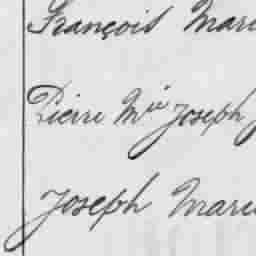 François Mari
Pierre Mie Joseph
Joseph Marie